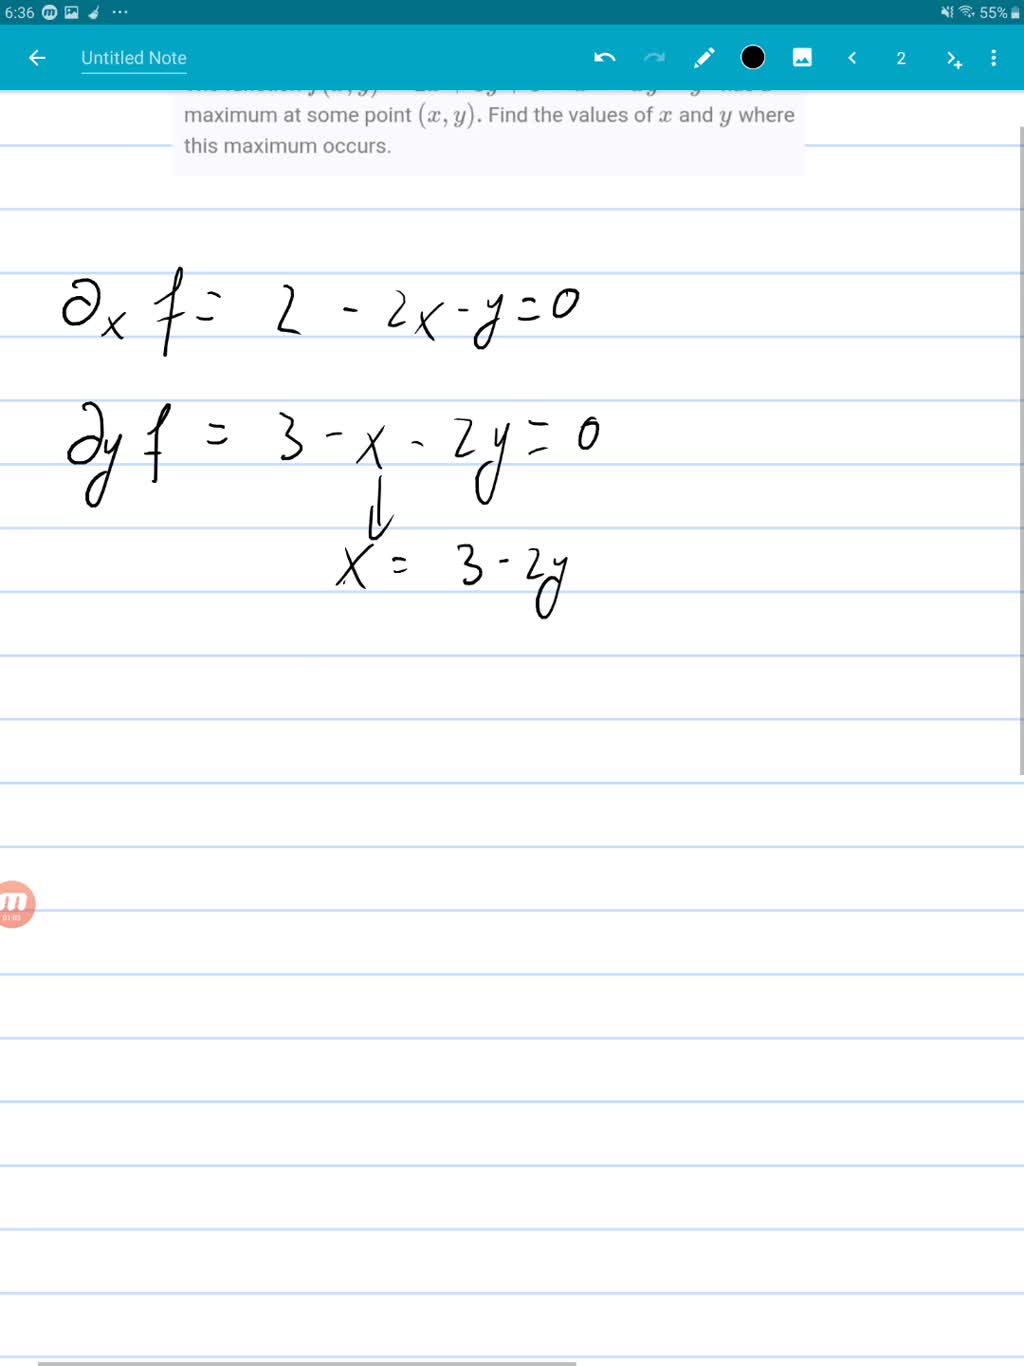 6:36 55%
Untitled Note 2
maximum at some point (x, y). Find the values of x and y where
this maximum occurs.
∂x f = 2 - 2x - y = 0
∂y f = 3 - x - 2y = 0
↓
x = 3 - 2y
m
01:03